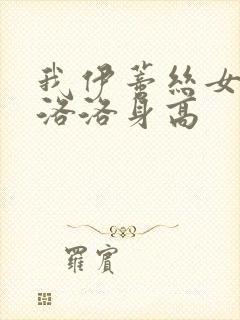 我伊蒂丝女
洛洛身高
羅賓